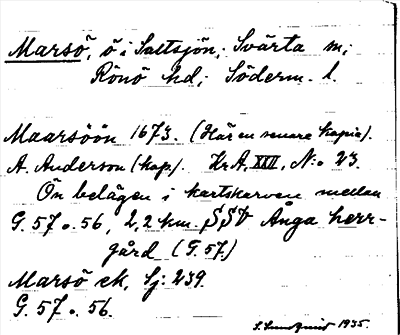 Marsö, ö i Saltsjön, Svärta sn;
Rönö hd; Söderm. l.
Maarsöön 1673. (Här en senare kopia).
A. Anderson (kop.). Kr A, XXII, N:o 23.
Ön belägen i kartskarven mellan
G. 57 o. 56, 2,2 km. SSV Ånga herr-
gård (G. 57.)
Marsö ek, Sj: 239.
G. 57 o. 56.
S. Sundquist 1935.